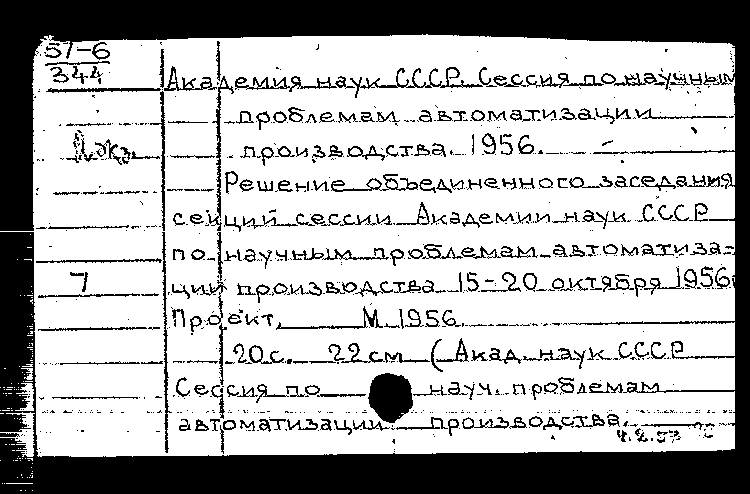 57-6
344
Академия наук СССР. Сессия по научным
проблемам автоматизации
производства. 1956.
Решение объединенного заседания
секций сессии Академии наук СССР
по научным проблемам автоматиза-
7
ции производства 15-20 октября 1956
Проект. М. 1956.
20с. 22см (Акад. наук СССР
Сессия по науч. проблемам
автоматизации производства.